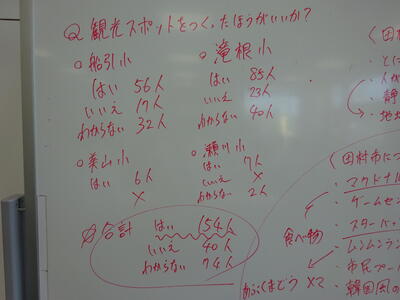 Q 観光スポットをつくったほうがいいか?
○船引小
はい 56人
いいえ 17人
わからない 32人
○滝根小
はい 85人
いいえ 23人
わからない 40人
○美山小
はい 6人
×
○瀬川小
はい 7人
いいえ ×
わからない 2人
合計 はい 154人
いいえ 40人
わからない 74人
(田村市につ
・マクドナル
・ゲームセン
・スターバッ
食べ物
・ムシムシラン
・市民プー
・韓国風の